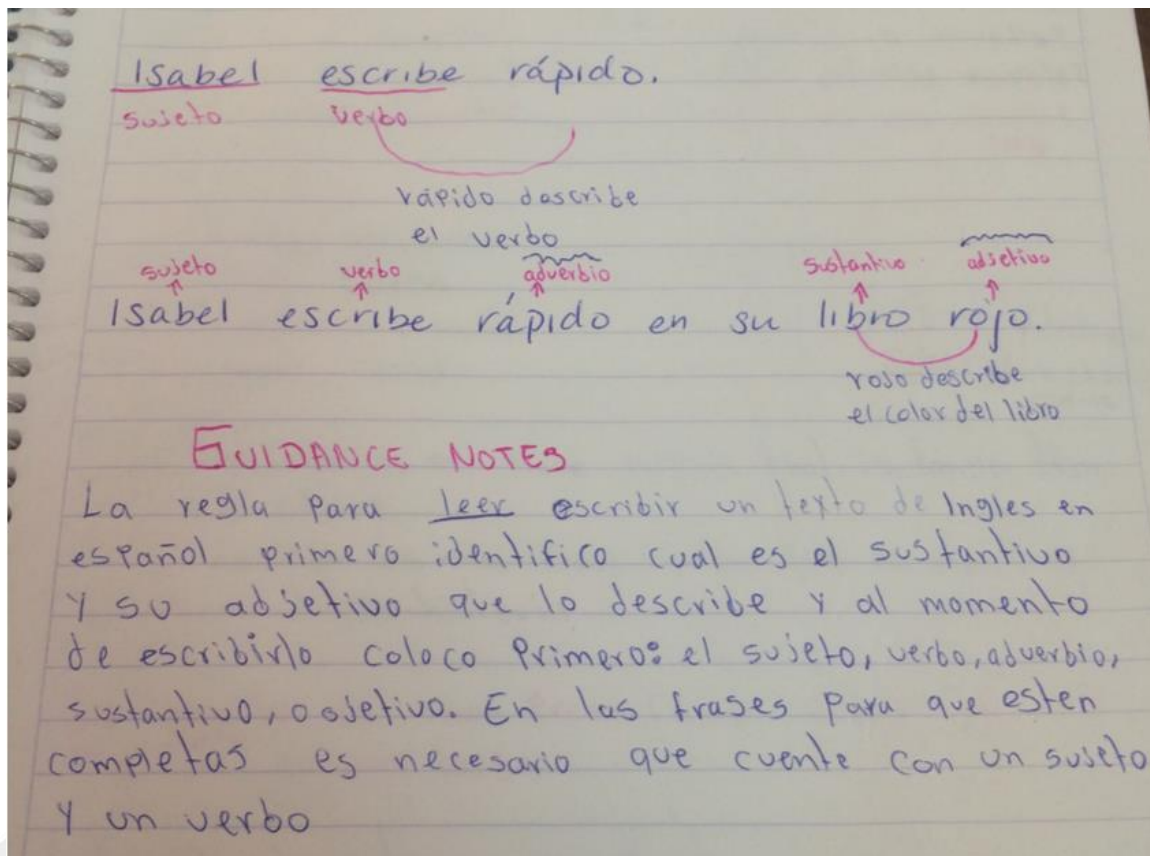 Isabel escribe rápido.
sujeto verbo
rápido describe
el verbo
sujeto verbo adverbio sustantivo adjetivo
Isabel escribe rápido en su libro rojo.
rojo describe
el color del libro
GUIDANCE NOTES
La regla para leer escribir un texto de Ingles en
español primero identifico cual es el sustantivo
y su adjetivo que lo describe y al momento
de escribirlo coloco primero: el sujeto, verbo, adverbio,
sustantivo, o ojetivo. En las frases para que esten
completas es necesario que cuente con un sujeto
y un verbo